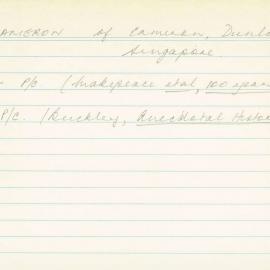 AMERON of Cameron, Dunlo
Singapore.
- P/C (Makepeace et al, 100 years
P/C. (Buckley, Anecdotal Histo